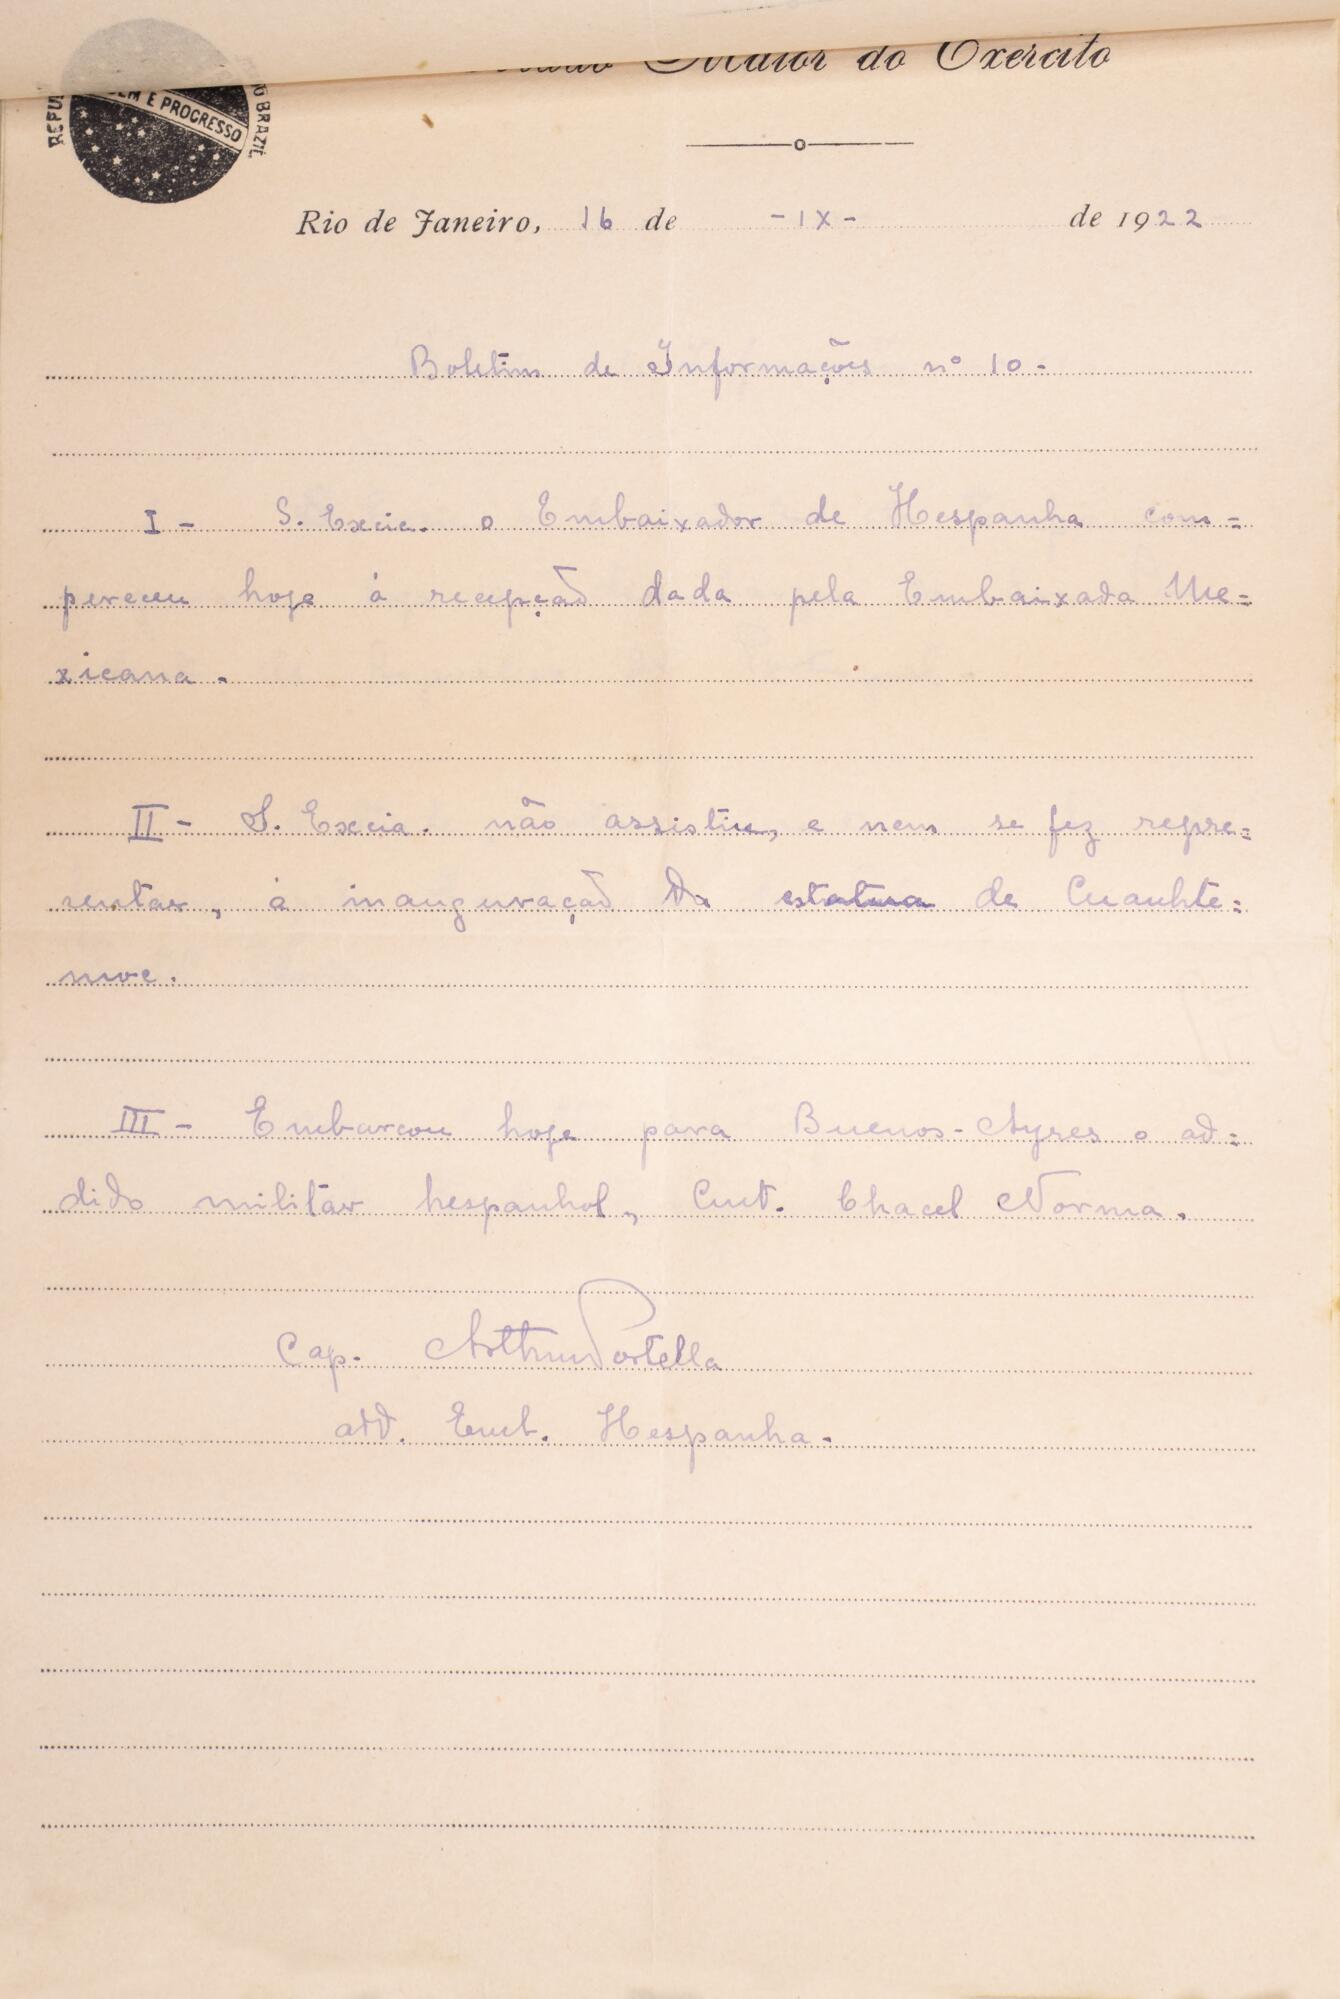 Maior do Exercito
REPU DO BRAZIL
EM E PROGRESSO
Rio de Janeiro, 16 de -IX- de 1922
Boletim de Informações nº 10-
I - S. Excia. o Embaixador de Hespanha com=
pereceu hoje á recepção dada pela Embaixada Me=
xicana.
II - S. Excia. não assistiu, e nem se fez repre=
sentar, á inauguração da estatua de Cuauhte=
moc.
III - Embarcou hoje para Buenos-Ayres o ad=
dido militar hespanhol, Cmt. Chacel Norma.
Cap. Arthur Portella
add. Emb. Hespanha.